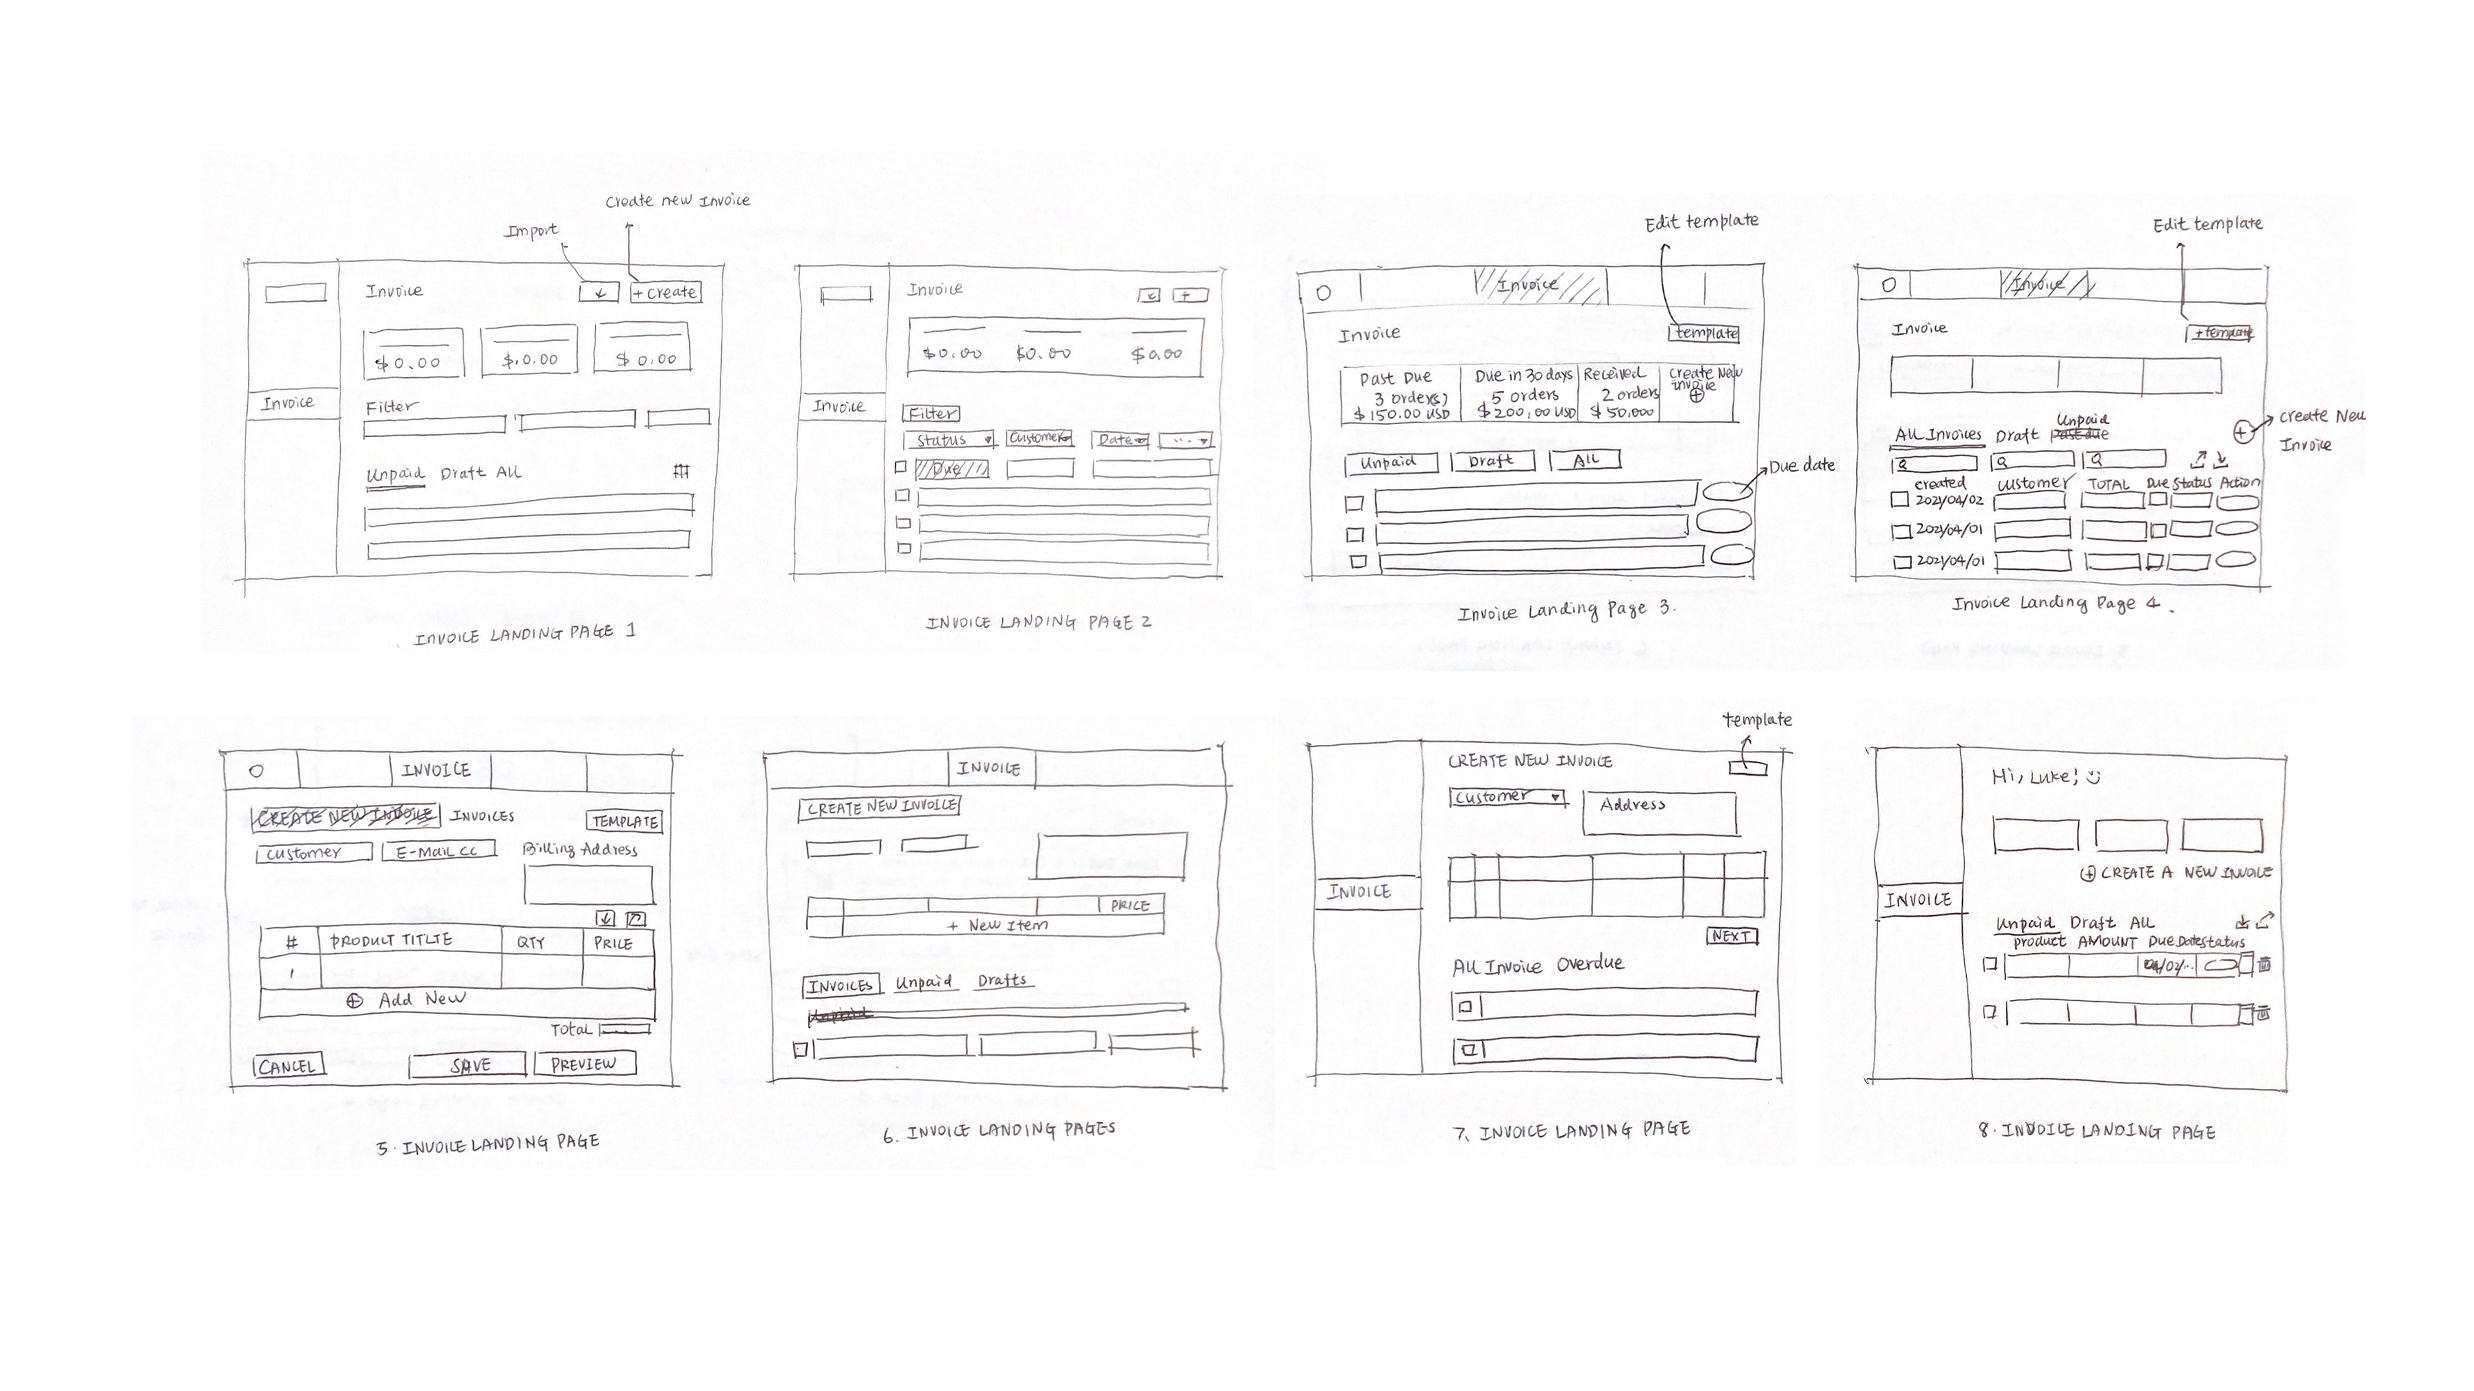 Create new Invoice
Import
Invoice
↓
+ Create
$ 0.00
$ 0.00
$ 0.00
Invoice
Filter
Unpaid Draft All
INVOICE LANDING PAGE 1
Invoice
+
$0.00
$0.00
$0.00
Invoice
Filter
Status
Customer
Date
...
Due
INVOICE LANDING PAGE 2
Edit template
Invoice
Invoice
template
Past Due
3 order(s)
$150.00 USD
Due in 30 days
5 orders
$200,00 USD
Received
2 orders
$50,000
Create New
invoice
Unpaid
Draft
All
Due date
Invoice Landing Page 3.
Edit template
Invoice
Invoice
+ template
All Invoices Draft Unpaid
Past due
Create New
Invoice
created customer TOTAL Due Status Action
2021/04/02
2021/04/01
2021/04/01
Invoice Landing Page 4.
INVOICE
CREATE NEW INVOICE
INVOICES
TEMPLATE
Customer
E-Mail CC
Billing Address
# PRODUCT TITLTE QTY PRICE
1
⊕ Add New
Total
CANCEL
SAVE
PREVIEW
5. INVOICE LANDING PAGE
INVOICE
CREATE NEW INVOICE
PRICE
+ New Item
INVOICES Unpaid Drafts
Unpaid
6. INVOICE LANDING PAGES
template
CREATE NEW INVOICE
Customer
Address
INVOICE
NEXT
All Invoice Overdue
7. INVOICE LANDING PAGE
Hi, Luke!
⊕ CREATE A NEW INVOICE
INVOICE
Unpaid Draft All
product AMOUNT Due Date status
04/02/..
8. INVOICE LANDING PAGE